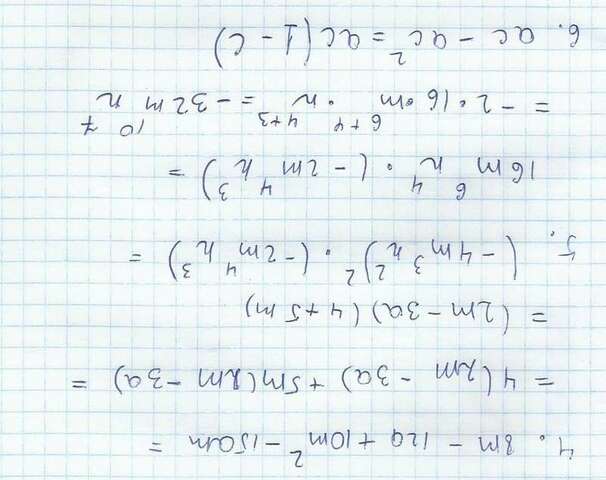 4. 8m - 12a + 10m² - 15am =
= 4(2m - 3a) + 5m(2m - 3a) =
= (2m - 3a)(4 + 5m)
5. (-4m³n²)² · (-2m⁴n³) =
16m⁶n⁴ · (-2m⁴n³) =
= -2 · 16 · m⁶⁺⁴ · n⁴⁺³ = -32m¹⁰n⁷
6. ac - ac² = ac(1 - c)